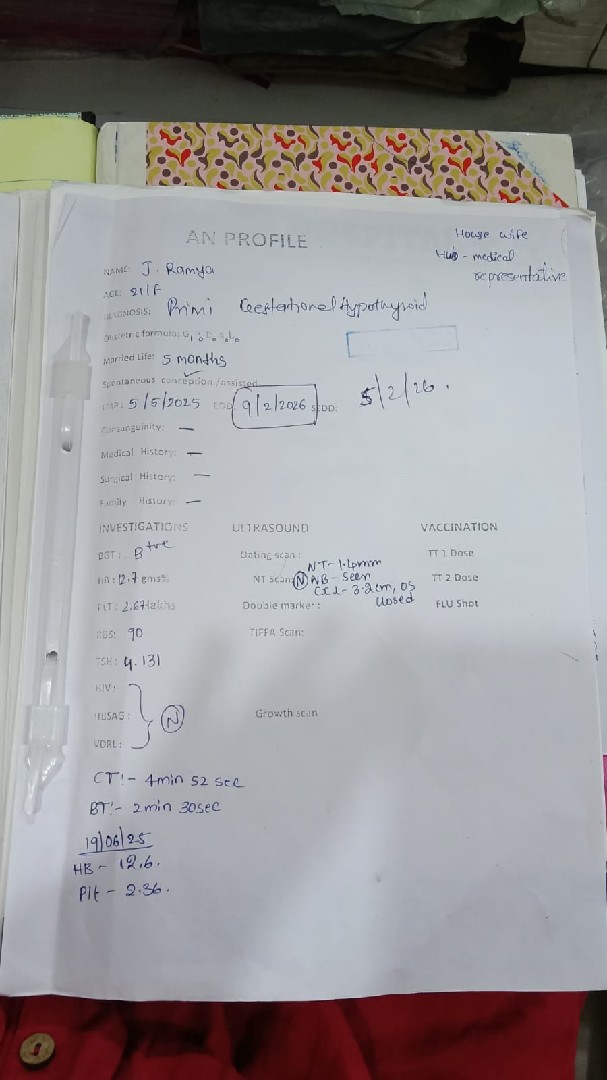 AN PROFILE
House wife
Hus - medical
representative
NAME: J. Ramya
AGE: 21/F
DIAGNOSIS: Primi Gestational Hypothyroid
Obstetric formula: G1
Married Life: 5 months
Spontaneous conception / assisted
LMP: 5/5/2025 EDD: 9/2/2026 SEDD: 5/2/26.
Consanguinity: —
Medical History: —
Surgical History: —
Family History: —
INVESTIGATIONS ULTRASOUND VACCINATION
BGT: B+ve Dating scan: TT 1 Dose
NT - 1.4mm
HB: 12.7 gms%. NT Scan: (N) NB - Seen TT 2 Dose
CxL - 3.2cm, OS
closed
PLT: 2.67 lakhs Double marker: FLU Shot
RBS: 90 TIFFA Scan:
TSH: 4.131
HIV:
HBSAG: (N) Growth scan
VDRL:
CT:- 4min 52 sec
BT:- 2min 30sec
19/06/25
HB - 12.6.
Plt - 2.36.